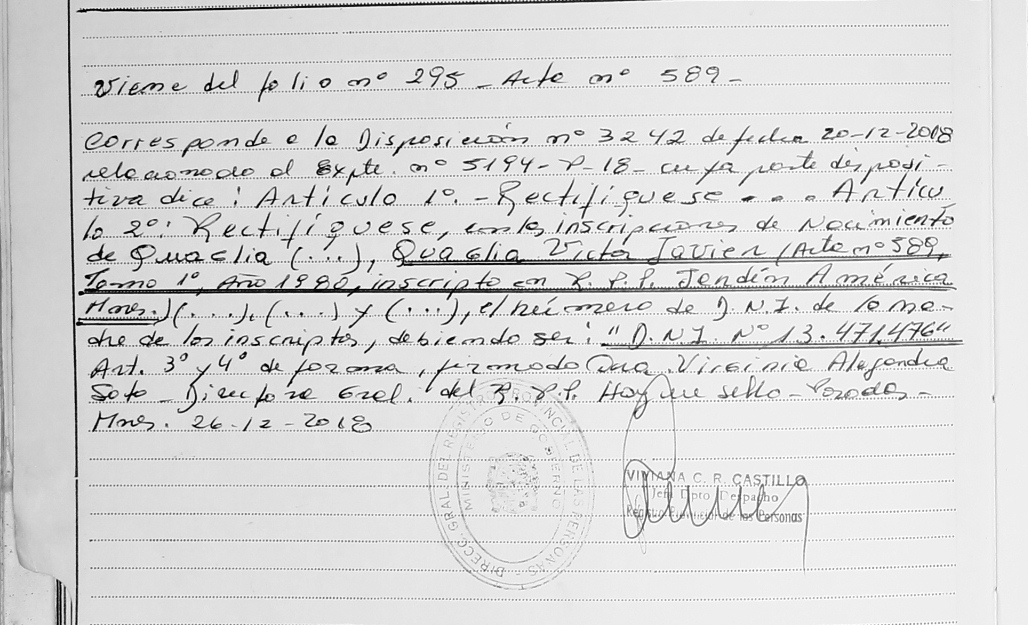 Viene del folio nº 295 - Acta nº 589 -
Corresponde a la Disposición nº 3242 de fecha 20-12-2018
relacionado al Expte. nº 5194-P-18- cuya parte disposi-
tiva dice: Artículo 1º.- Rectifíquese . . . Artícu
lo 2º: Rectifíquese, en las inscripciones de Nacimiento
de Quaglia (...), Quaglia Victor Javier (Acta nº 589,
Tomo 1º, Año 1990, inscripto en R.P.P. Jardín América
Mnes.) (...), (...) y (...), el número de D.N.I. de la ma-
dre de los inscriptos, debiendo ser: "D.N.I. Nº 13.471.476"
Art. 3º y 4º de forma, firmado Dra. Virginia Alejandra
Soto - Directora Gral. del R.P.P. Hay un sello - Posadas -
Mnes. 26-12-2018
DIRECC. GRAL. DEL REGISTRO PROVINCIAL DE LAS PERSONAS
MINISTERIO DE GOBIERNO
VIVIANA C. R. CASTILLO
Jefa Dpto Despacho
Registro Provincial de las Personas